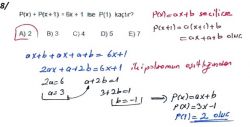 8/
P(x) + P(x+1) = 6x + 1 ise P(1) kaçtır?
A) 2 B) 3 C) 4 D) 5 E) 7
P(x) = ax+b seçilirse
P(x+1) = a(x+1)+b
= ax+a+b olur
ax+b + ax+a+b = 6x+1
2ax + a+2b = 6x+1
iki polinomun eşitliğinden
2a=6 a+2b=1
a=3 3+2b=1
b=-1
P(x)=ax+b
P(x)=3x-1
P(1)=2 olur